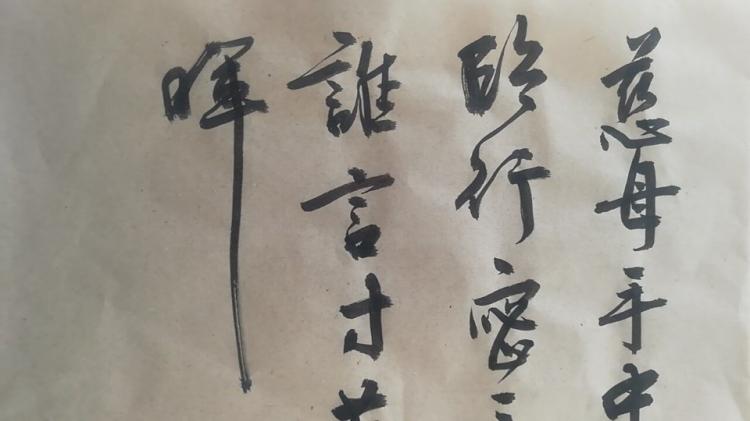 慈母手中
临行密
誰言寸草
暉